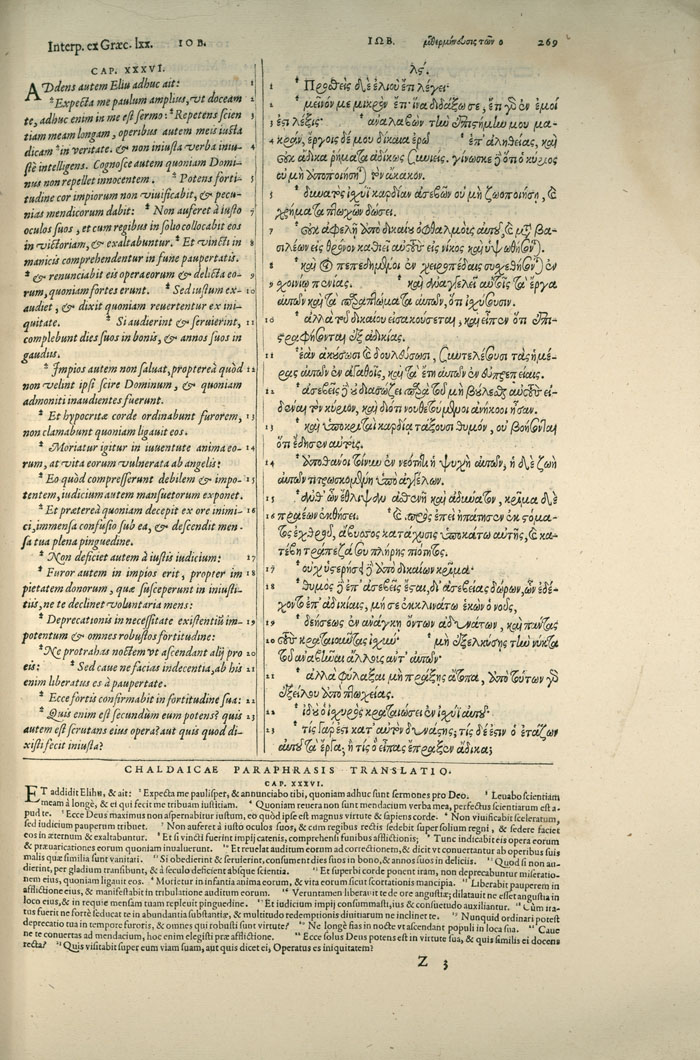 Interp. ex Græc. lxx. IOB.
CAP. XXXVI.
ADdens autem Eliu adhuc ait: 1
*Expecta me paulum amplius, vt doceam 2
te, adhuc enim in me est sermo: *Repetens scien 3
tiam meam longam, operibus autem meis iusta
dicam *in veritate. & non iniusta verba iniu- 4
stè intelligens. Cognosce autem quoniam Domi-
nus non repellet innocentem. *Potens forti- 5
tudine cor impiorum non viuificabit, & pecu-
nias mendicorum dabit: *Non auferet à iusto 7
oculos suos, et cum regibus in solio collocabit eos
in victoriam, & exaltabuntur. *Et vincti in 8
manicis comprehendentur in fune paupertatis.
*& renunciabit eis opera eorum & delicta eo- 9
rum, quoniam fortes erunt. *Sed iustum ex- 10
audiet, & dixit quoniam reuertentur ex ini-
quitate. *Si audierint & seruierint, 11
complebunt dies suos in bonis, & annos suos in
gaudiis.
*Impios autem non saluat, propterea quòd 12
non velint ipsi scire Dominum, & quoniam
admoniti inaudientes fuerunt.
*Et hypocritæ corde ordinabunt furorem, 13
non clamabunt quoniam ligauit eos.
*Moriatur igitur in iuuentute anima eo- 14
rum, at vita eorum vulnerata ab angelis:
*Eo quòd compresserunt debilem & impo- 15
tentem, iudicium autem mansuetorum exponet.
*Et præterea quoniam decipit ex ore inimi- 16
ci, immensa confusio sub ea, & descendit men-
sa tua plena pinguedine.
*Non deficiet autem à iustis iudicium: 17
*Furor autem in impios erit, propter im 18
pietatem donorum, quæ susceperunt in iniusti-
tiis, ne te declinet voluntaria mens:
*Deprecationis in necessitate existentiū im- 19
potentum & omnes robustos fortitudine:
*Ne protrahas noctem vt ascendant alij pro 20
eis: *Sed caue ne facias indecentia, ab his 21
enim liberatus es à paupertate.
*Ecce fortis confirmabit in fortitudine sua: 22
*Quis enim est secundùm eum potens? quis 23
autem est scrutans eius opera? aut quis quòd di-
xisti fecit iniusta?
ΙΩΒ. μεθερμήνευσις τῶν ο 269
λϛ.
1 Προσθεὶς δὲ ἐλιοὺ ἔτι λέγει·
2 *μεῖνόν με μικρὸν ἔτι ἵνα διδάξω σε, ἔτι γὰρ ἐν ἐμοί
3 ἐστι λέξις· *ἀναλαβὼν τὴν ἐπιστήμην μου μα-
4 κρὰν, ἔργοις δέ μου δίκαια ἐρῶ *ἐπ' ἀληθείας, καὶ
οὐκ ἄδικα ῥήματα ἀδίκως συνιείς. γίνωσκε δὲ ὅτι ὁ κύριος
οὐ μὴ ἀποποιήσηται τὸν ἄκακον.
5 *δυνατὸς ἰσχύϊ καρδίαν ἀσεβῶν οὐ μὴ ζωοποιήσῃ, καὶ
χρήματα πτωχῶν δώσει.
7 *οὐκ ἀφελεῖ ἀπὸ δικαίου ὀφθαλμοὺς αὐτοῦ, καὶ μετὰ βα-
σιλέων εἰς θρόνον καθιεῖ αὐτοὺς εἰς νῖκος καὶ ὑψωθήσονται.
8 *καὶ οἱ πεπεδημένοι ἐν χειροπέδαις συσχεθήσονται ἐν
9 σχοινίῳ πενίας. *καὶ ἀναγγελεῖ αὐτοῖς τὰ ἔργα
αὐτῶν καὶ τὰ παραπτώματα αὐτῶν, ὅτι ἰσχύσουσιν.
10 *ἀλλὰ τοῦ δικαίου εἰσακούσεται, καὶ εἶπεν ὅτι ἐπι-
στραφήσονται ἐξ ἀδικίας.
11 *ἐὰν ἀκούσωσι καὶ δουλεύσωσι, συντελέσουσι τὰς ἡμέ-
ρας αὐτῶν ἐν ἀγαθοῖς, καὶ τὰ ἔτη αὐτῶν ἐν εὐπρεπείαις.
12 *ἀσεβεῖς δὲ οὐ διασώζει παρὰ τὸ μὴ βούλεσθαι αὐτοὺς εἰ-
δέναι τὸν κύριον, καὶ διότι νουθετούμενοι ἀνήκοοι ἦσαν.
13 *καὶ ὑποκριταὶ καρδίᾳ τάξουσι θυμόν, οὐ βοήσονται
ὅτι ἔδησεν αὐτούς.
14 *ἀποθάνοι τοίνυν ἐν νεότητι ἡ ψυχὴ αὐτῶν, ἡ δὲ ζωὴ
αὐτῶν τιτρωσκομένη ὑπὸ ἀγγέλων.
15 *ἀνθ' ὧν ἔθλιψαν ἀσθενῆ καὶ ἀδύνατον, κρίμα δὲ
16 πραέων ἐκθήσει. *καὶ προσέτι ἐπεὶ ἠπάτησεν ἐκ στόμα-
τος ἐχθροῦ, ἄβυσσος κατάχυσις ὑποκάτω αὐτῆς, καὶ κα-
τέβη τράπεζά σου πλήρης πιότητος.
17 *οὐχ ὑστερήσει δὲ ἀπὸ δικαίων κρίμα·
18 *θυμὸς δὲ ἐπ' ἀσεβεῖς ἔσται, δι' ἀσέβειαν δώρων, ὧν ἐδέ-
χοντο ἐπ' ἀδικίαις, μή σε ἐκκλινάτω ἑκὼν ὁ νοῦς,
19 *δεήσεως ἐν ἀνάγκῃ ὄντων ἀδυνάτων, καὶ πάντας
20 τοὺς κραταιοῦντας ἰσχύν· *μὴ ἐξελκύσῃς τὴν νύκτα
τοῦ ἀναβῆναι ἄλλους ἀντ' αὐτῶν·
21 *ἀλλὰ φύλαξαι μὴ πράξῃς ἄτοπα, ἀπὸ τούτων γὰρ
ἐξείλου ἀπὸ πτωχείας.
22 *ἰδοὺ ὁ ἰσχυρὸς κραταιώσει ἐν ἰσχύϊ αὐτοῦ·
23 *τίς γάρ ἐστι κατ' αὐτὸν δυνάστης; τίς δέ ἐστιν ὁ ἐτάζων
αὐτοῦ τὰ ἔργα; ἢ τίς ὁ εἴπας ἔπραξεν ἄδικα;
CHALDAICAE PARAPHRASIS TRANSLATIO.
CAP. XXXVI.
ET addidit Elihu, & ait: *Expecta me paulisper, & annunciabo tibi, quoniam adhuc sunt sermones pro Deo. *Leuabo scientiam
meam à longè, & ei qui fecit me tribuam iustitiam. *Quoniam reuera non sunt mendacium verba mea, perfectus scientiarum est a-
pud te. *Ecce Deus maximus non aspernabitur iustum, eo quòd ipse est magnus virtute & sapiens corde. *Non viuificabit sceleratum,
sed iudicium pauperum tribuet. *Non auferet à iusto oculos suos, & cum regibus rectis sedebit super solium regni, & sedere faciet
eos in æternum & exaltabuntur. *Et si vincti fuerint impij catenis, comprehensi funibus afflictionis; *Tunc indicabit eis opera eorum
& præuaricationes eorum quoniam inualuerunt. *Et reuelat auditum eorum ad correctionem, & dicit vt conuertantur ab operibus suis
malis quæ similia sunt vanitati. *Si obedierint & seruierint, consument dies suos in bono, & annos suos in deliciis. *Quod si non au-
dierint, per gladium transibunt, & à seculo deficient absque scientia. *Et superbi corde ponent iram, non deprecabuntur miseratio-
nem eius, quoniam ligauit eos. *Morietur in infantia anima eorum, & vita eorum sicut scortationis mancipia. *Liberabit pauperem in
afflictione eius, & manifestabit in tribulatione auditum eorum. *Veruntamen liberauit te de ore angustiæ; dilatauit ne esset angustia in
loco eius, & in requie mensam tuam repleuit pinguedine. *Et iudicium impij consummasti, ius & consuetudo auxiliantur. *Cùm ira-
tus fuerit ne fortè seducat te in abundantia substantiæ, & multitudo redemptionis diuitiarum ne inclinet te. *Nunquid ordinari potest
deprecatio tua in tempore furoris, & omnes qui robusti sunt virtute? *Ne longè fias in nocte vt ascendant populi in loca sua. *Caue
ne te conuertas ad mendacium, hoc enim elegisti præ afflictione. *Ecce solus Deus potens est in virtute sua, & quis similis ei docens
recta? *Quis visitabit super eum viam suam, aut quis dicet ei, Operatus es iniquitatem?
Z 3